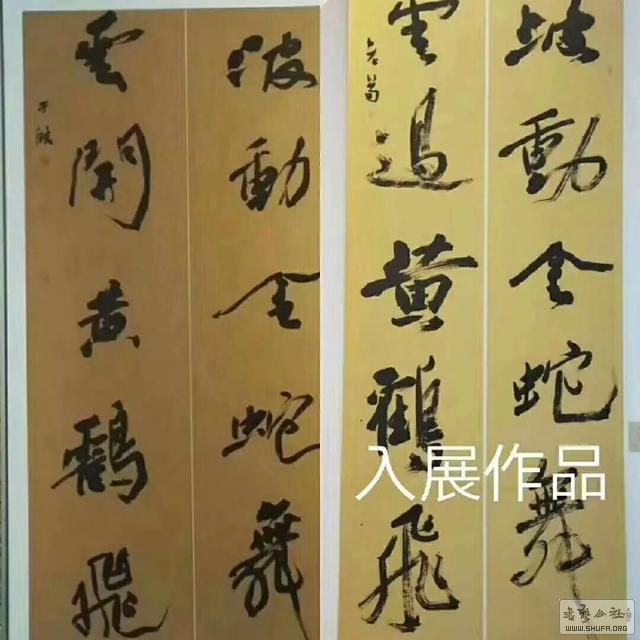 波動金蛇舞
雲開黃鶴飛
波動金蛇舞
雲過黃鶴飛
入展作品
WWW.SHUFA.ORG